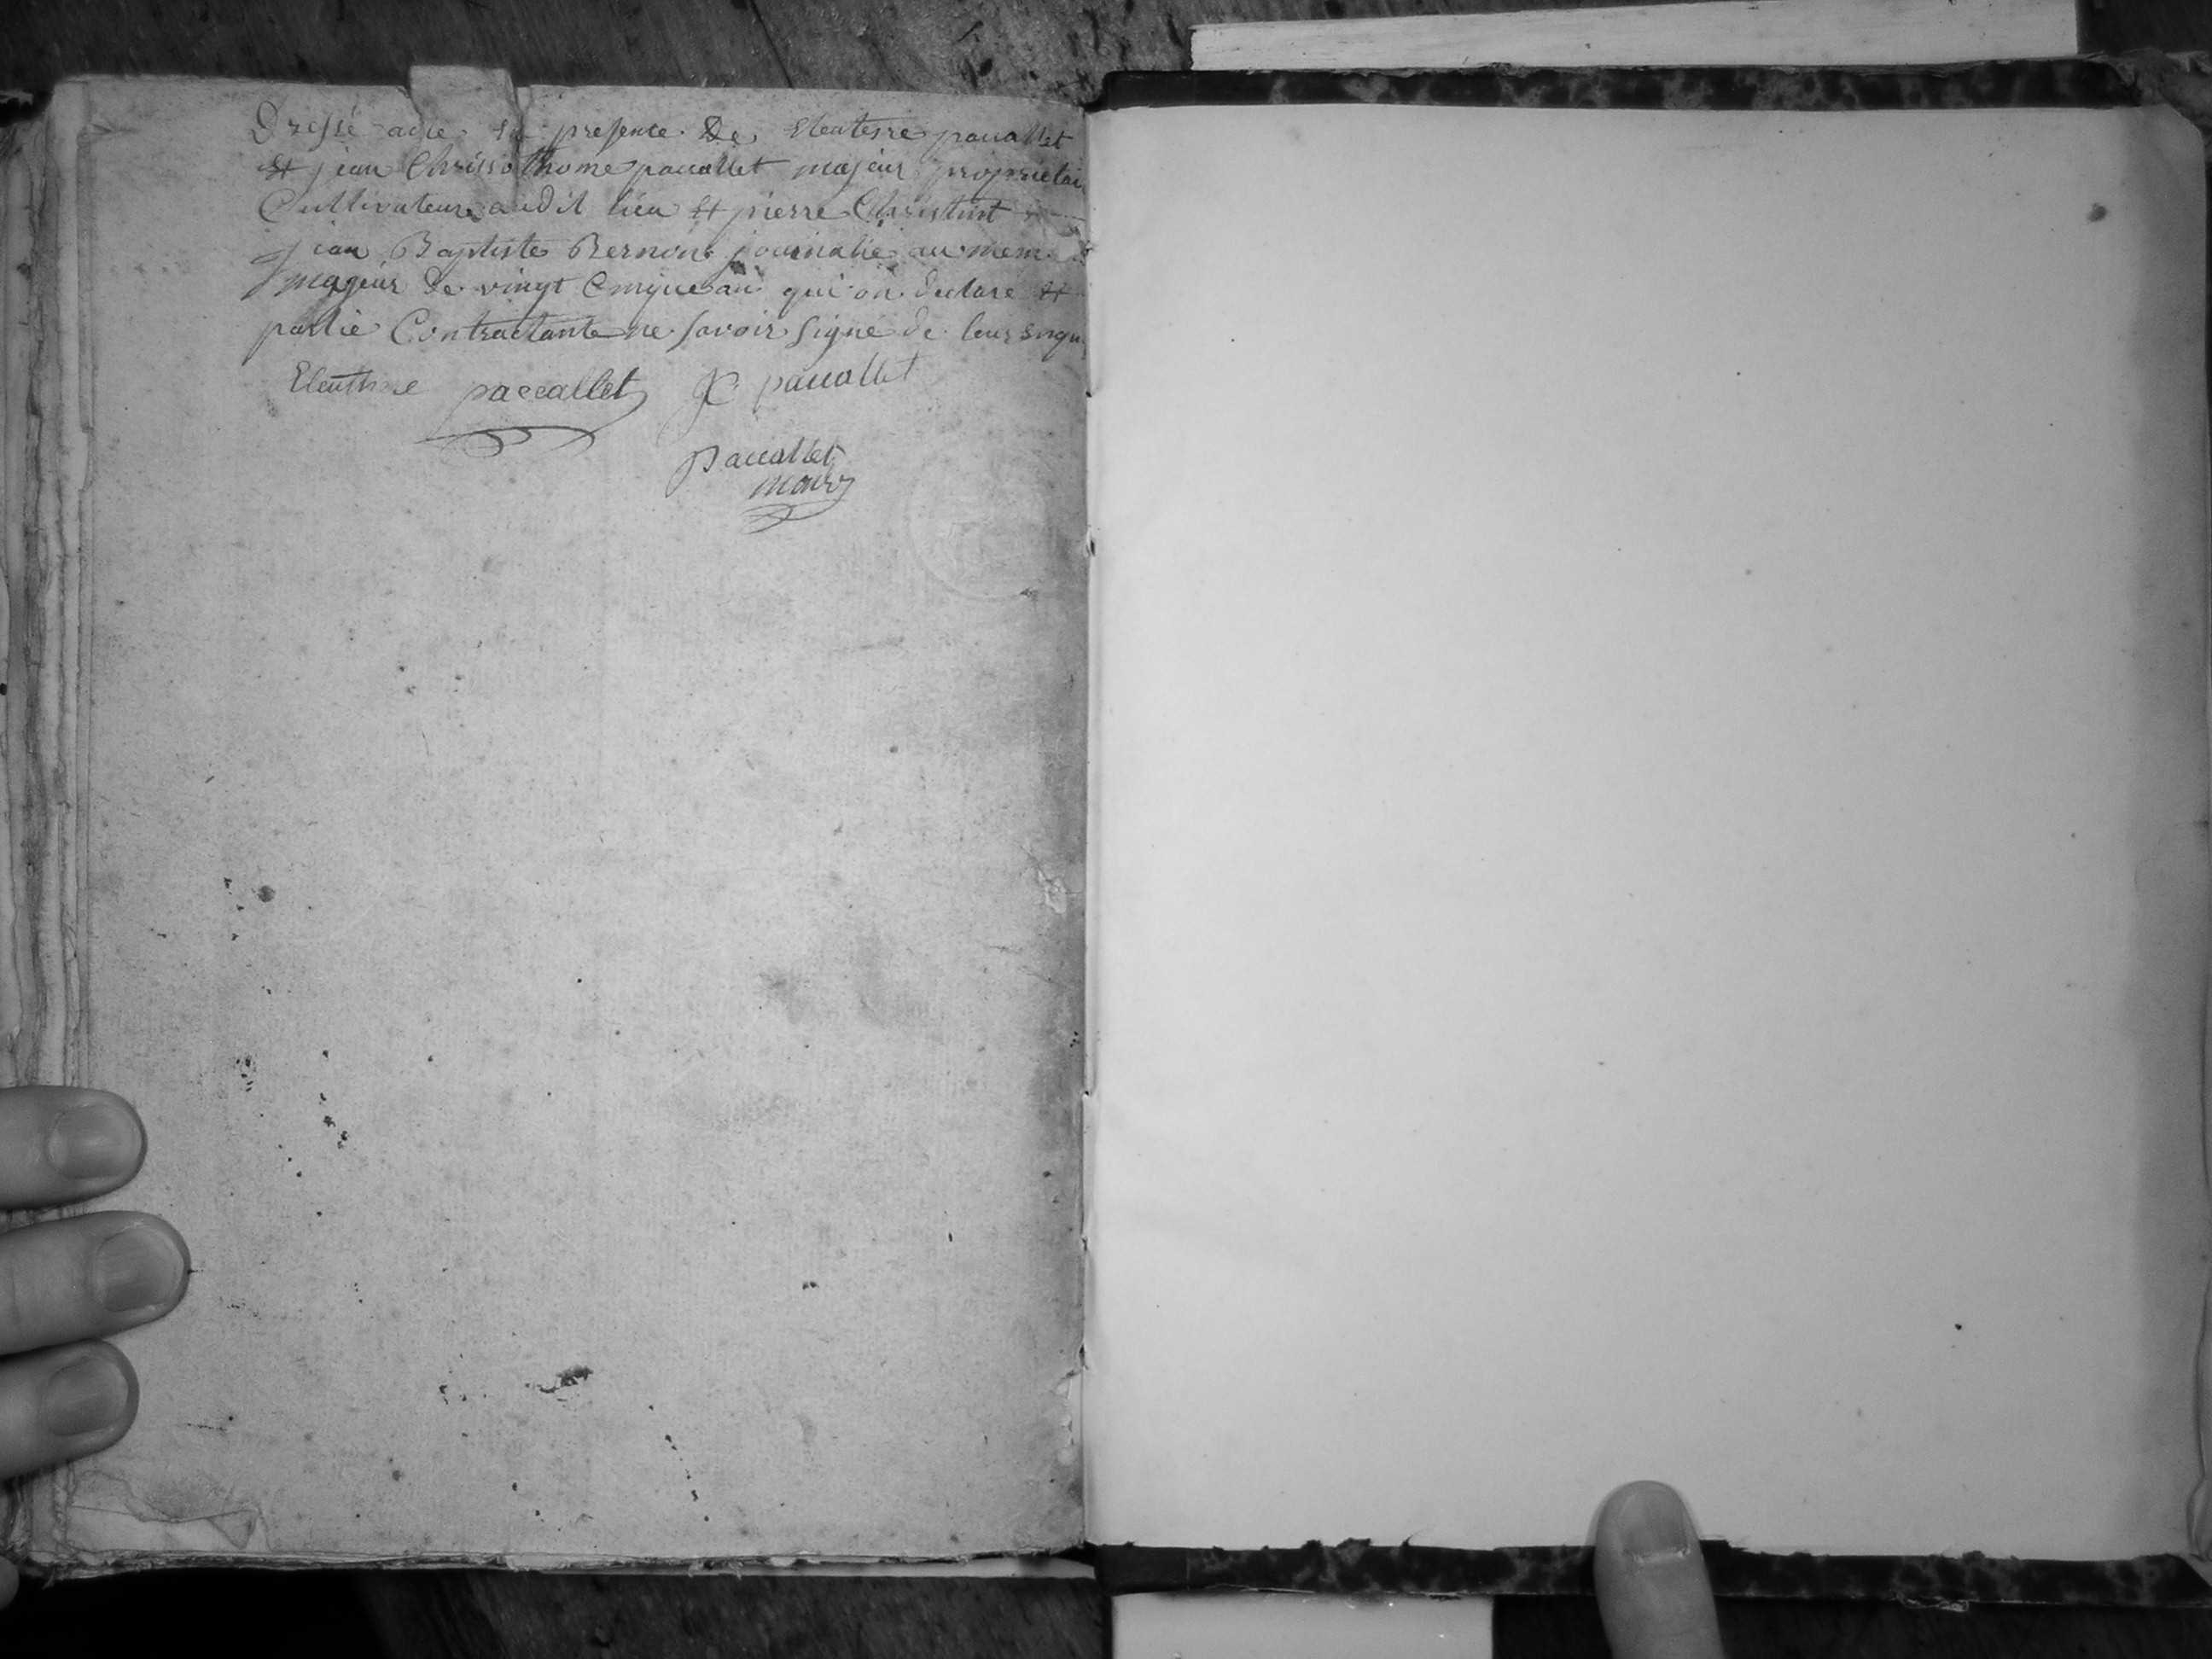 Dressé acte en presence De Eleuterre paccallet
Et jean Chrissothome paccallet majeur proprietai
Cultivateur audit lieu Et pierre Christint
jean Baptiste Bernon journalie au mem
majeur de vingt Cinque an qui on declare Et
partie Contractante ne savoir signé de leur enqu
Eleuthere paccallet JC paccallet
paccallet
maire